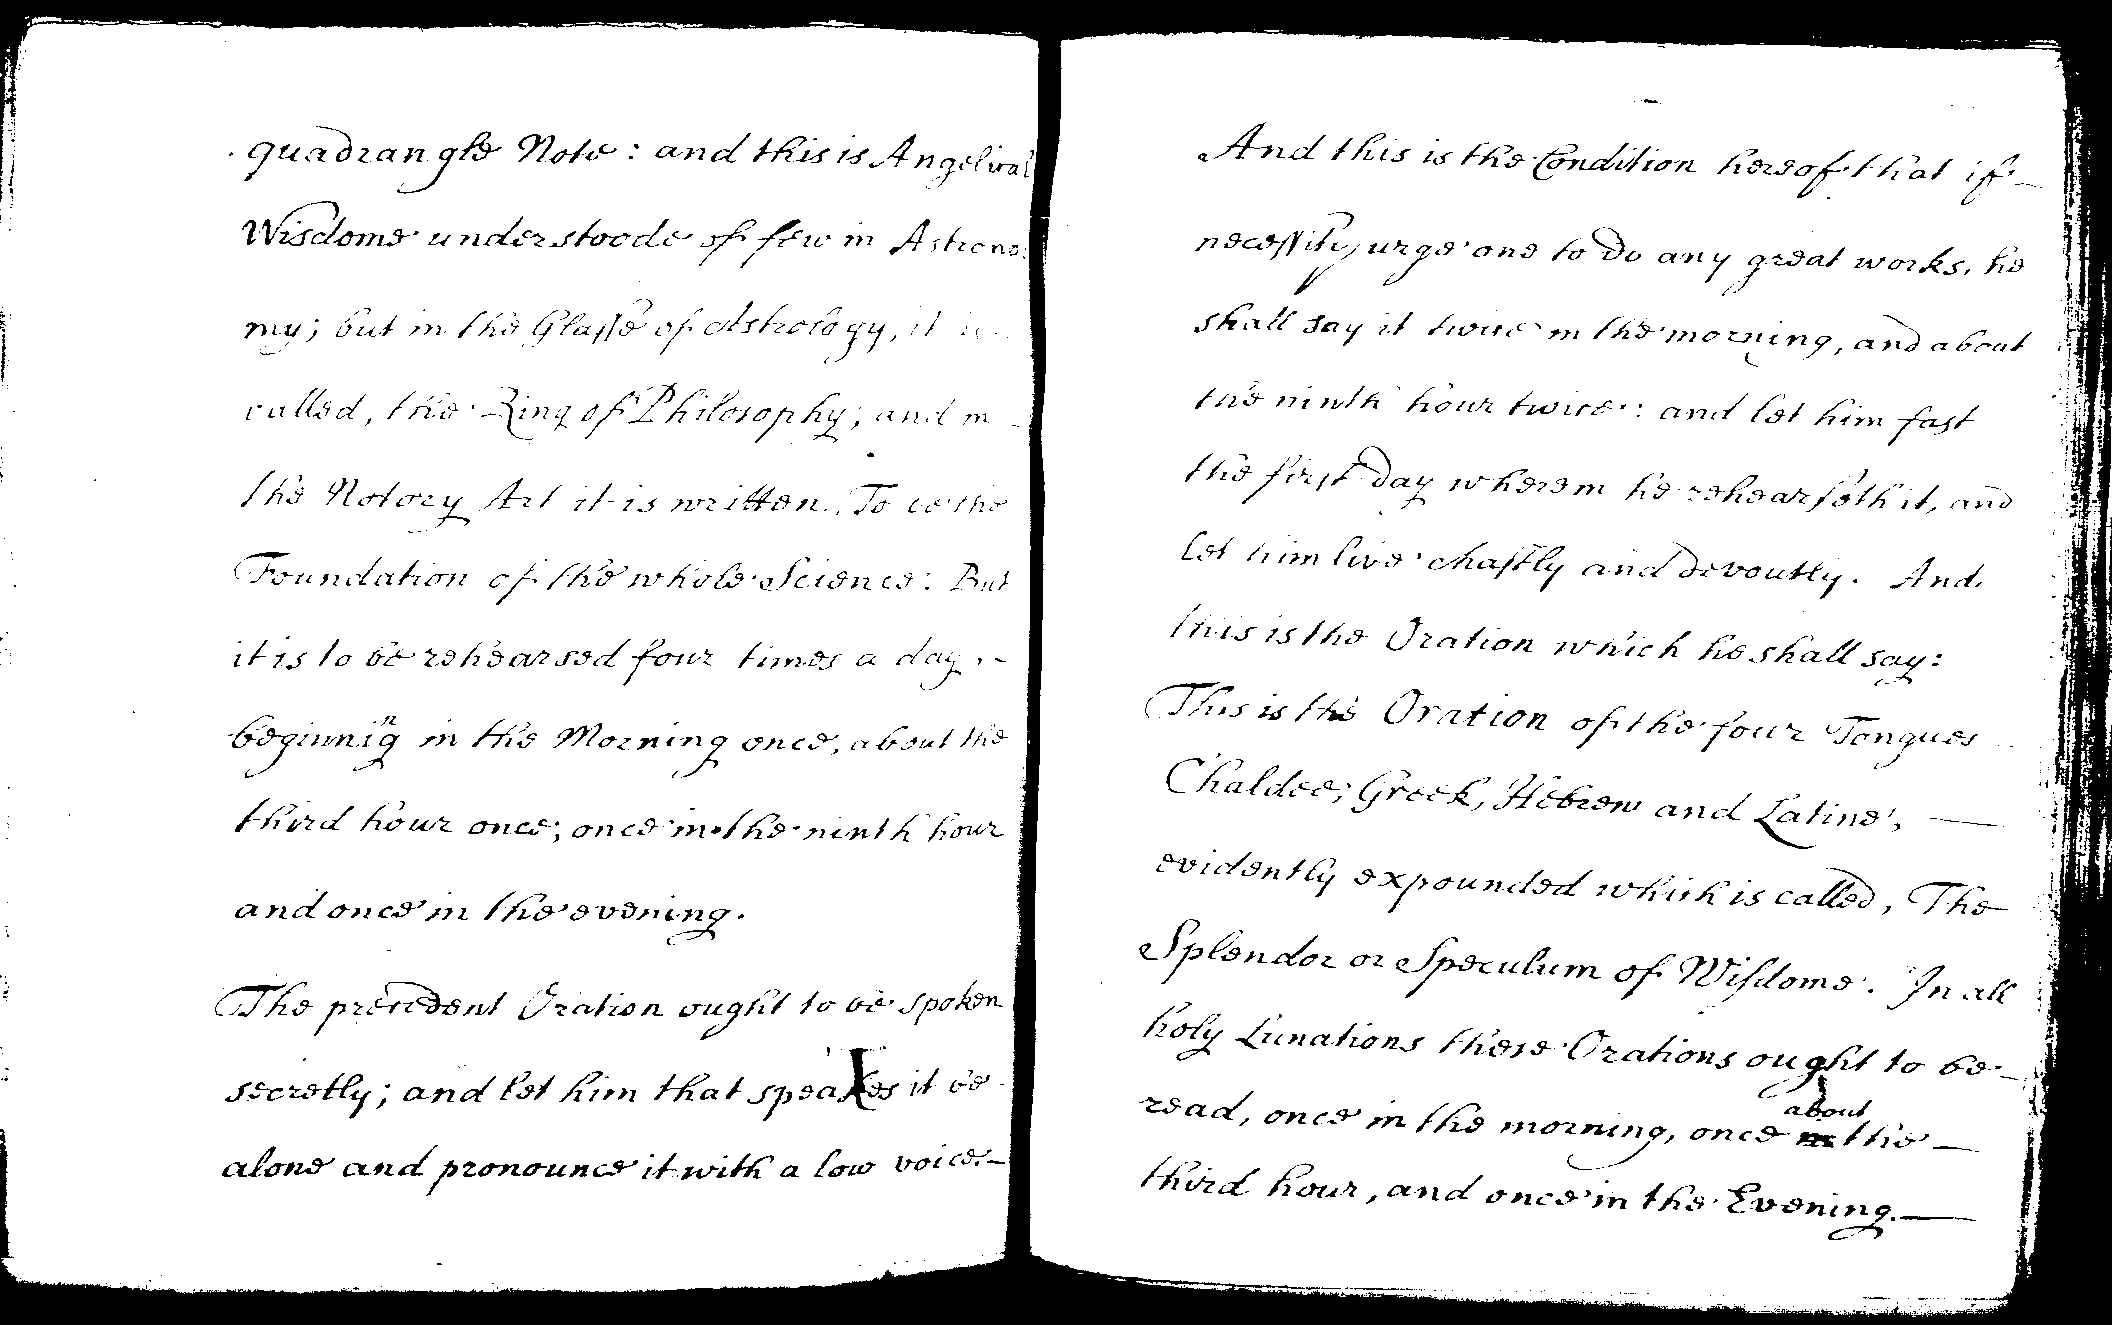 quadrangle Note: and this is Angelical
Wisdome understoode of few in Astrono:
my; but in the Glasse of Astrology, it is
called, the Ring of Philosophy; and in
the Notory Art it is written. To be the
Foundation of the whole Science. But
it is to be rehearsed four times a day,
beginning in the Morning once, about the
third hour once; once in the ninth hour
and once in the evening.
The precedent Oration ought to be spoken
secretly; and let him that speakes it be
alone and pronounce it with a low voice.
And this is the Condition hereof that if
necessity urge one to do any great works, he
shall say it twice in the morning, and about
the ninth hour twice: and let him fast
the first day wherein he rehearseth it, and
let him live chastly and devoutly. And
this is the Oration which he shall say:
This is the Oration of the four Tongues
Chaldee; Greek, Hebrew and Latine,
evidently expounded which is called, The
Splendor or Speculum of Wisdome. In all
holy Lunations these Orations ought to be
read, once in the morning, once about the
third hour, and once in the Evening.